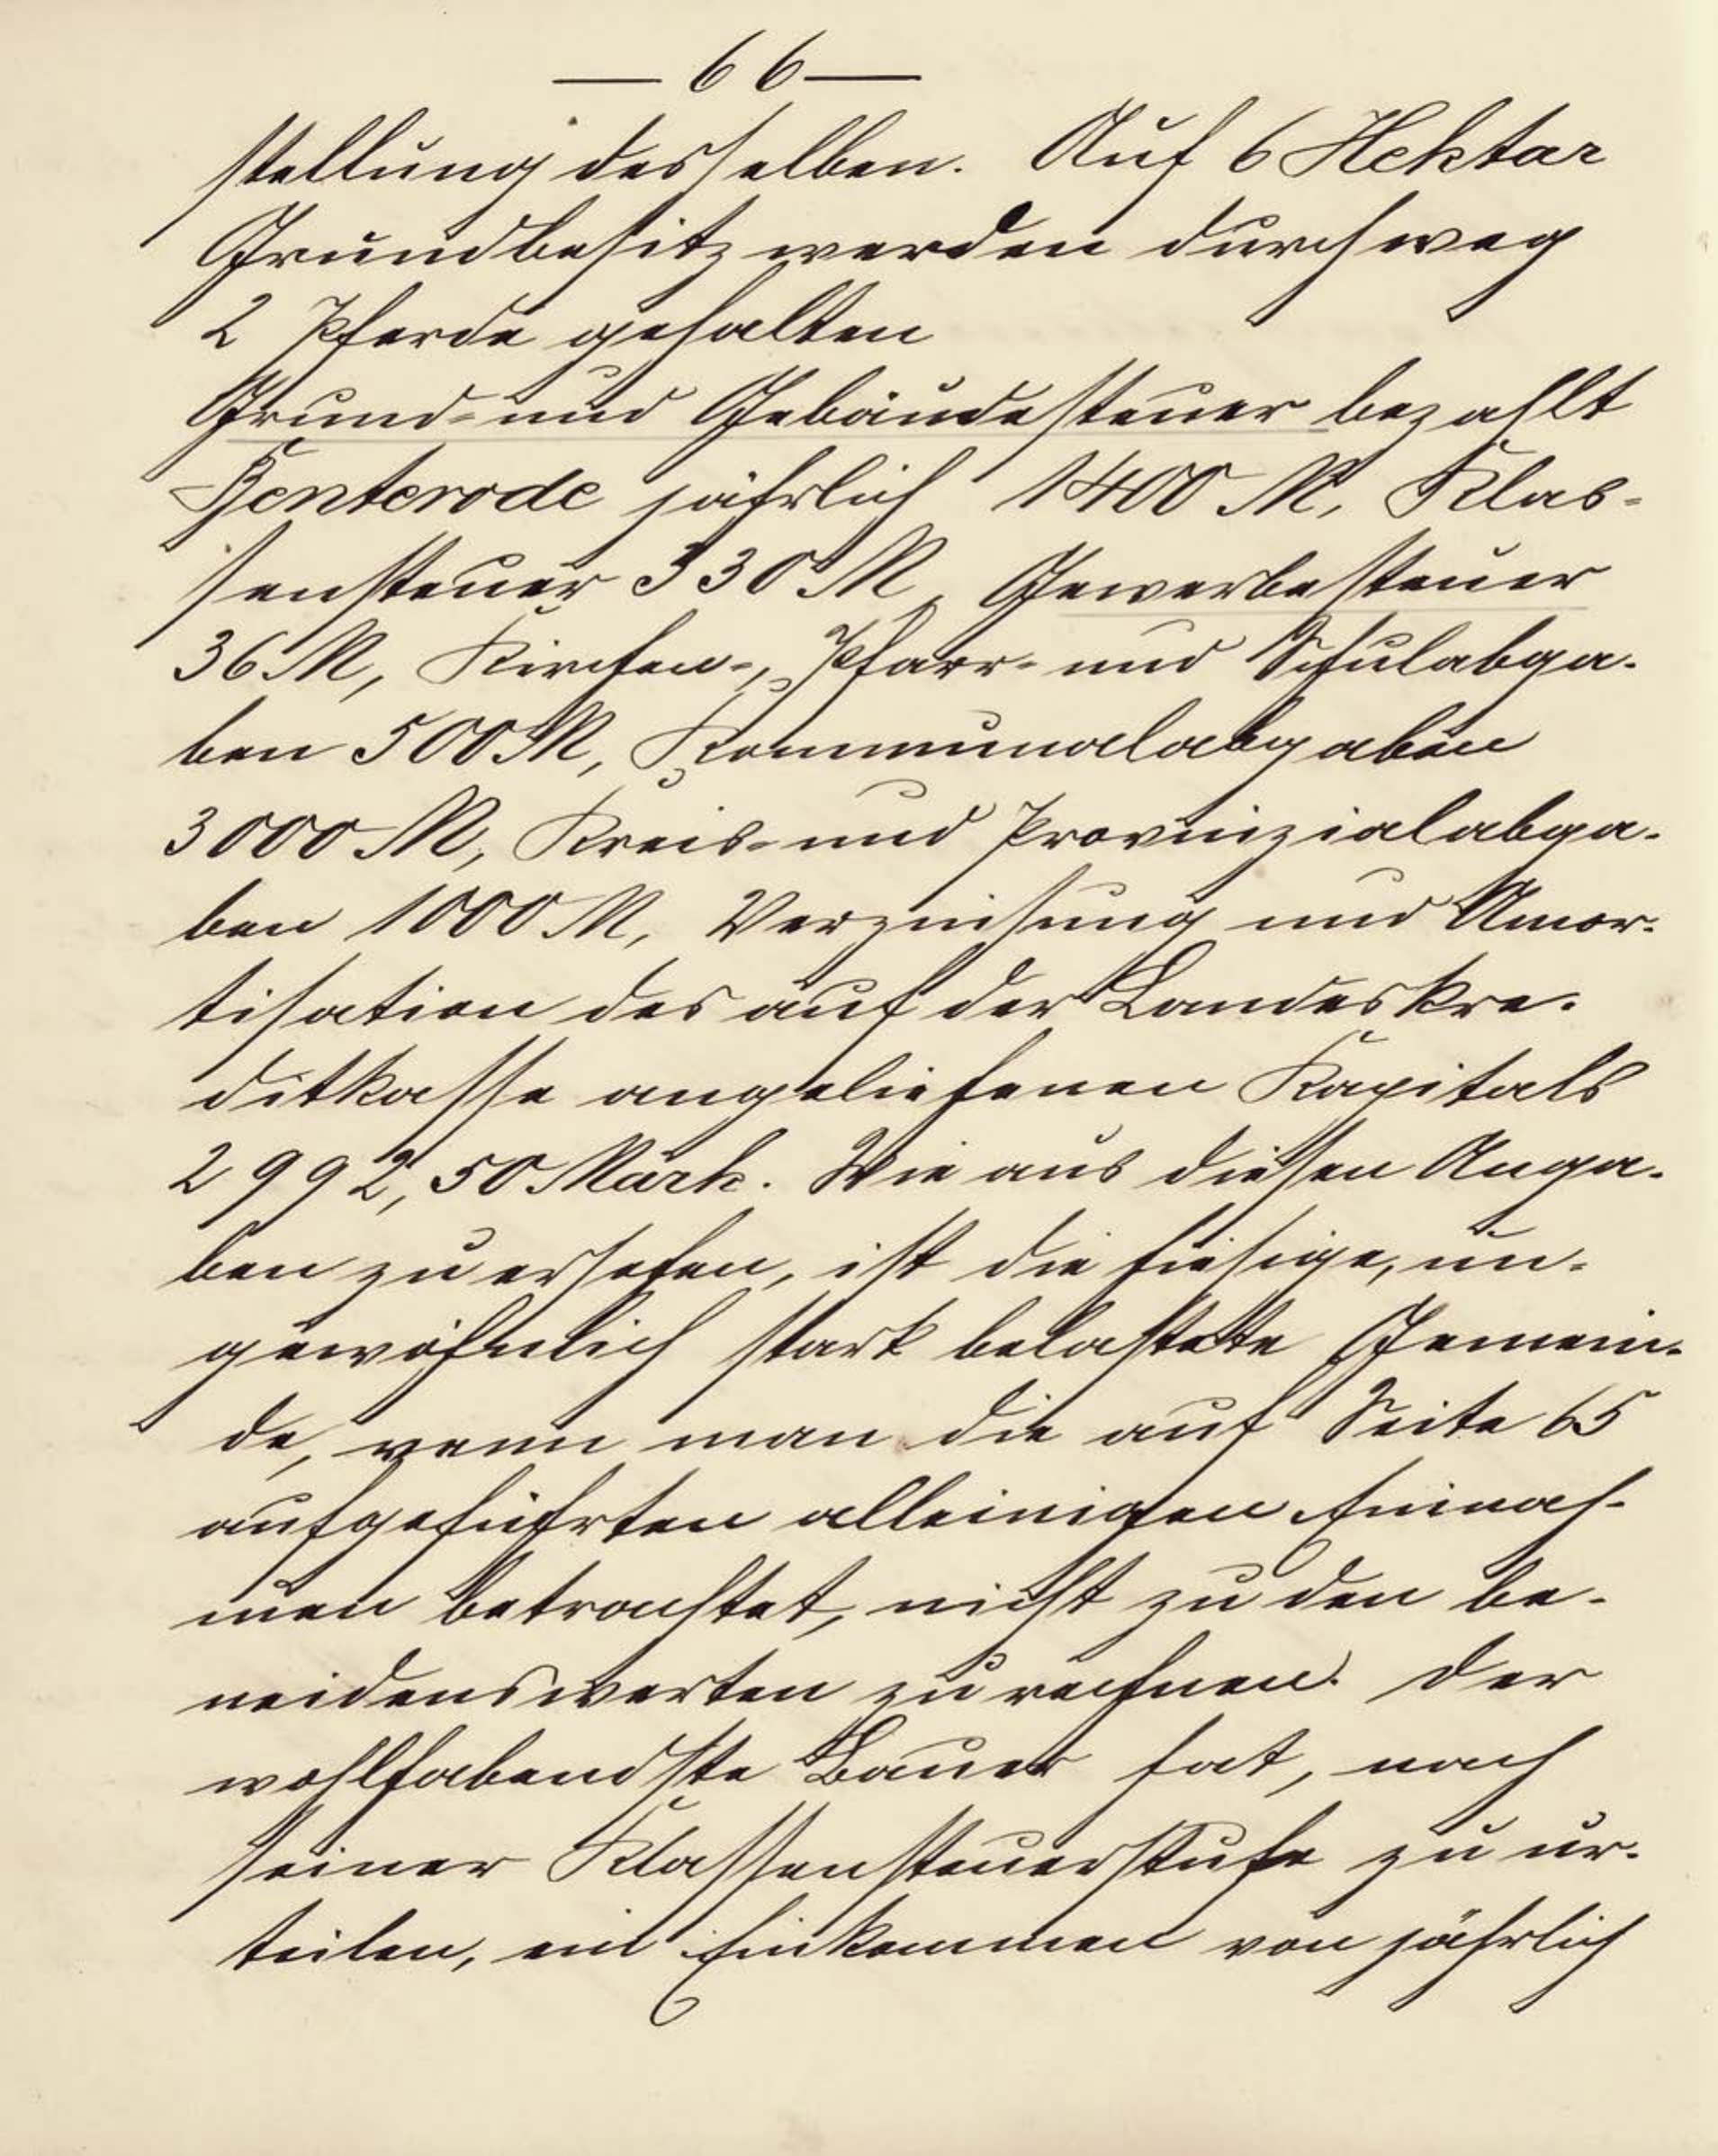 — 66 —
stellung desselben. Auf 6 Hektar
Grundbesitz werden durchweg
2 Pferde gehalten
Grund- und Gebäudesteuer bezahlt
Benterode jährlich 1400 M, Klas-
sensteuer 330 M, Gewerbesteuer
36 M, Kirchen-, Pfarr- und Schulabga-
ben 500 M, Kommunalabgaben
3000 M, Kreis- und Provinzialabga-
ben 1000 M, Verzinsung und Amor-
tisation des auf der Landeskre-
ditkasse angeliehenen Kapitals
2992,50 Mark. Wie aus diesen Anga-
ben zu ersehen, ist die hiesige, un-
gewöhnlich stark belastete Gemein-
de, wenn man die auf Seite 65
aufgeführten alleinigen Einnah-
men betrachtet, nicht zu den be-
neidenswerten zu rechnen. Der
wohlhabendste Bauer hat, nach
seiner Klassensteuerstufe zu ur-
teilen, ein Einkommen von jährlich